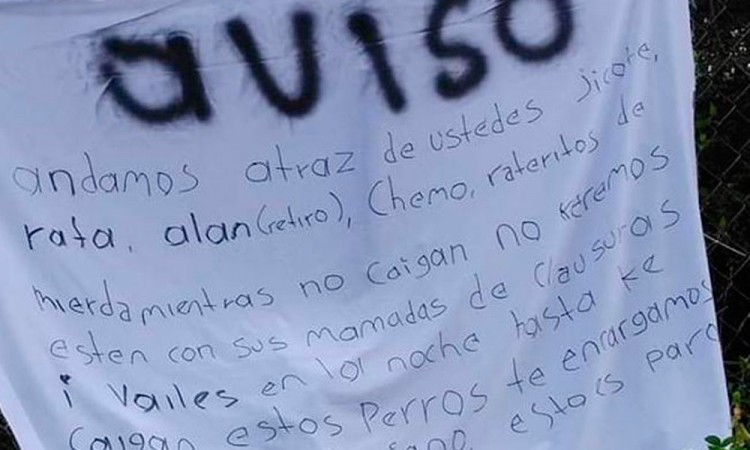 aviso
andamos atraz de ustedes jicote,
rata, alan(retiro), Chemo, rateritos de
mierda mientras no caigan no keremos
esten con sus mamadas de clausuras
i vailes en la noche hasta ke
caigan estos perros te enrargamos
estais para